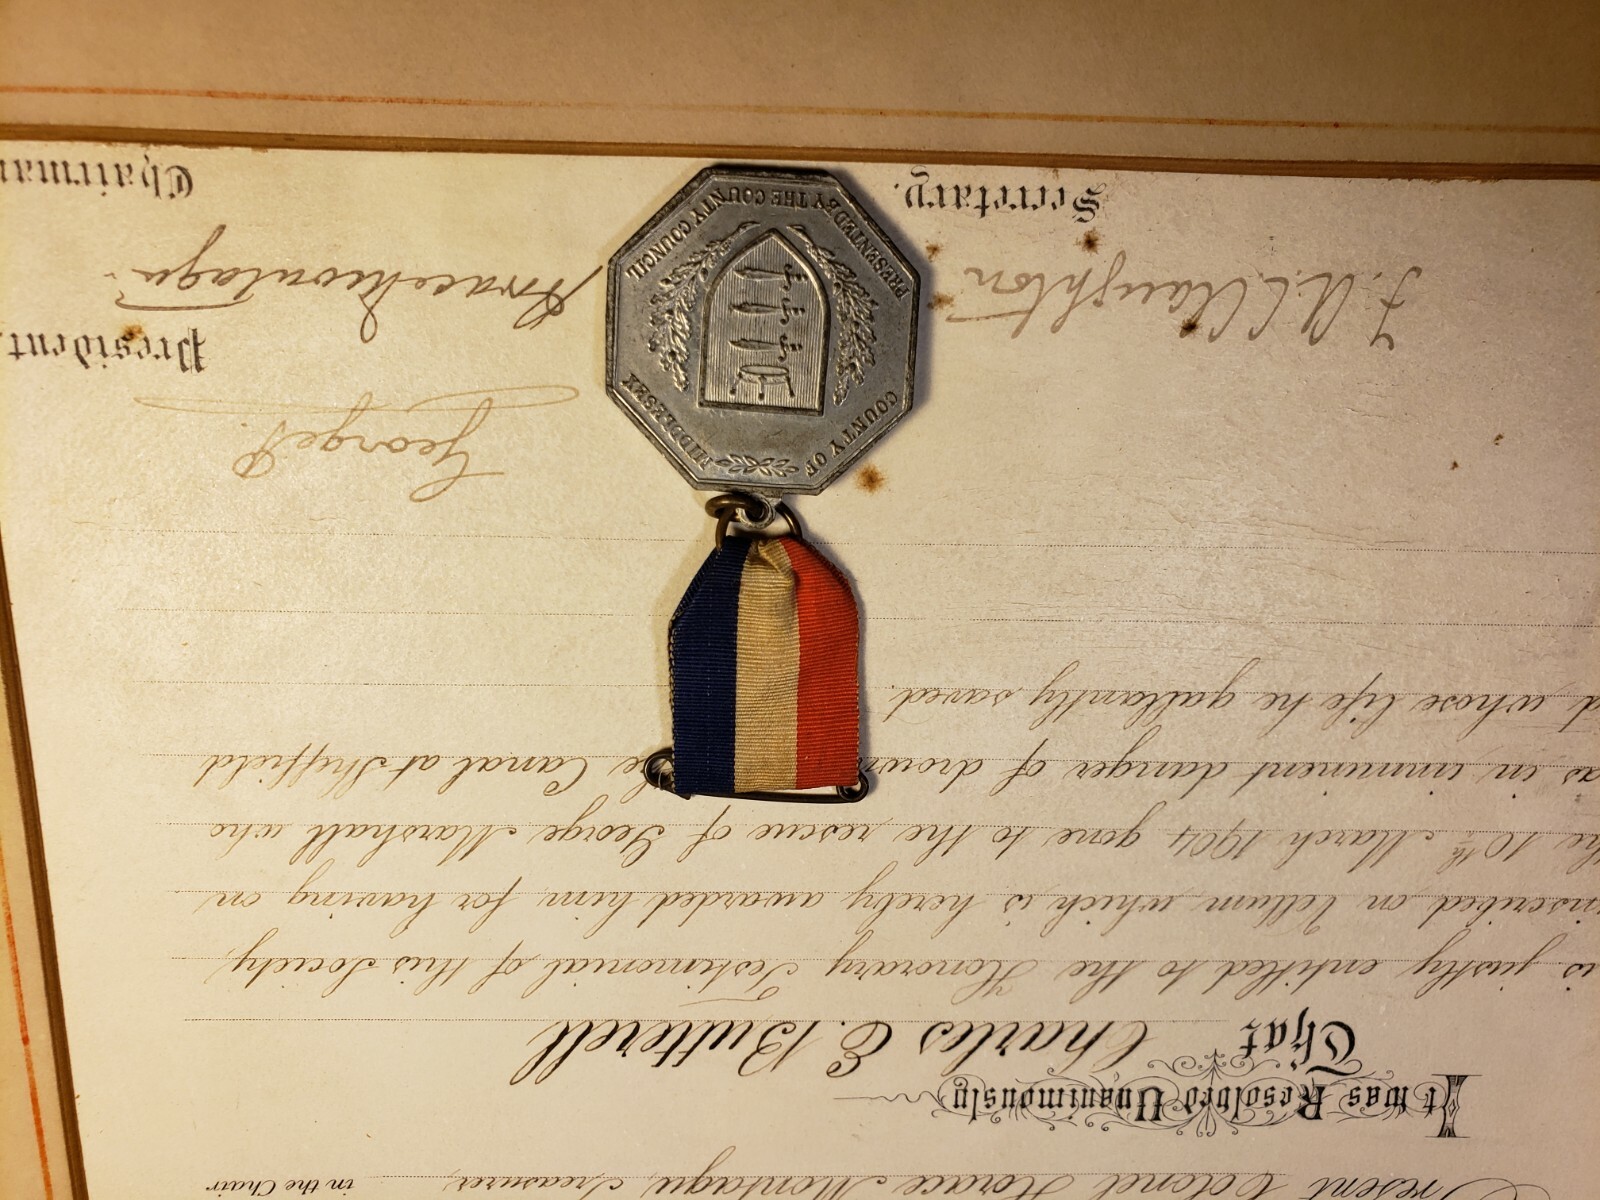 Present Colonel Horace Montagu, Treasurer, in the Chair
It was Resolved Unanimously
That Charles E. Butterell
is justly entitled to the Honorary Testimonial of this Society,
inscribed on Vellum, which is hereby awarded him for having on
the 10th March 1904 gone to the rescue of George Marshall who
as in imminent danger of the Canal at Sheffield
d whose life he gallantly saved.
George P.
President.
F. A. C. Claughton Horace Montagu
Secretary. Chairman
COUNTY OF MIDDLESEX
PRESENTED BY THE COUNTY COUNCIL